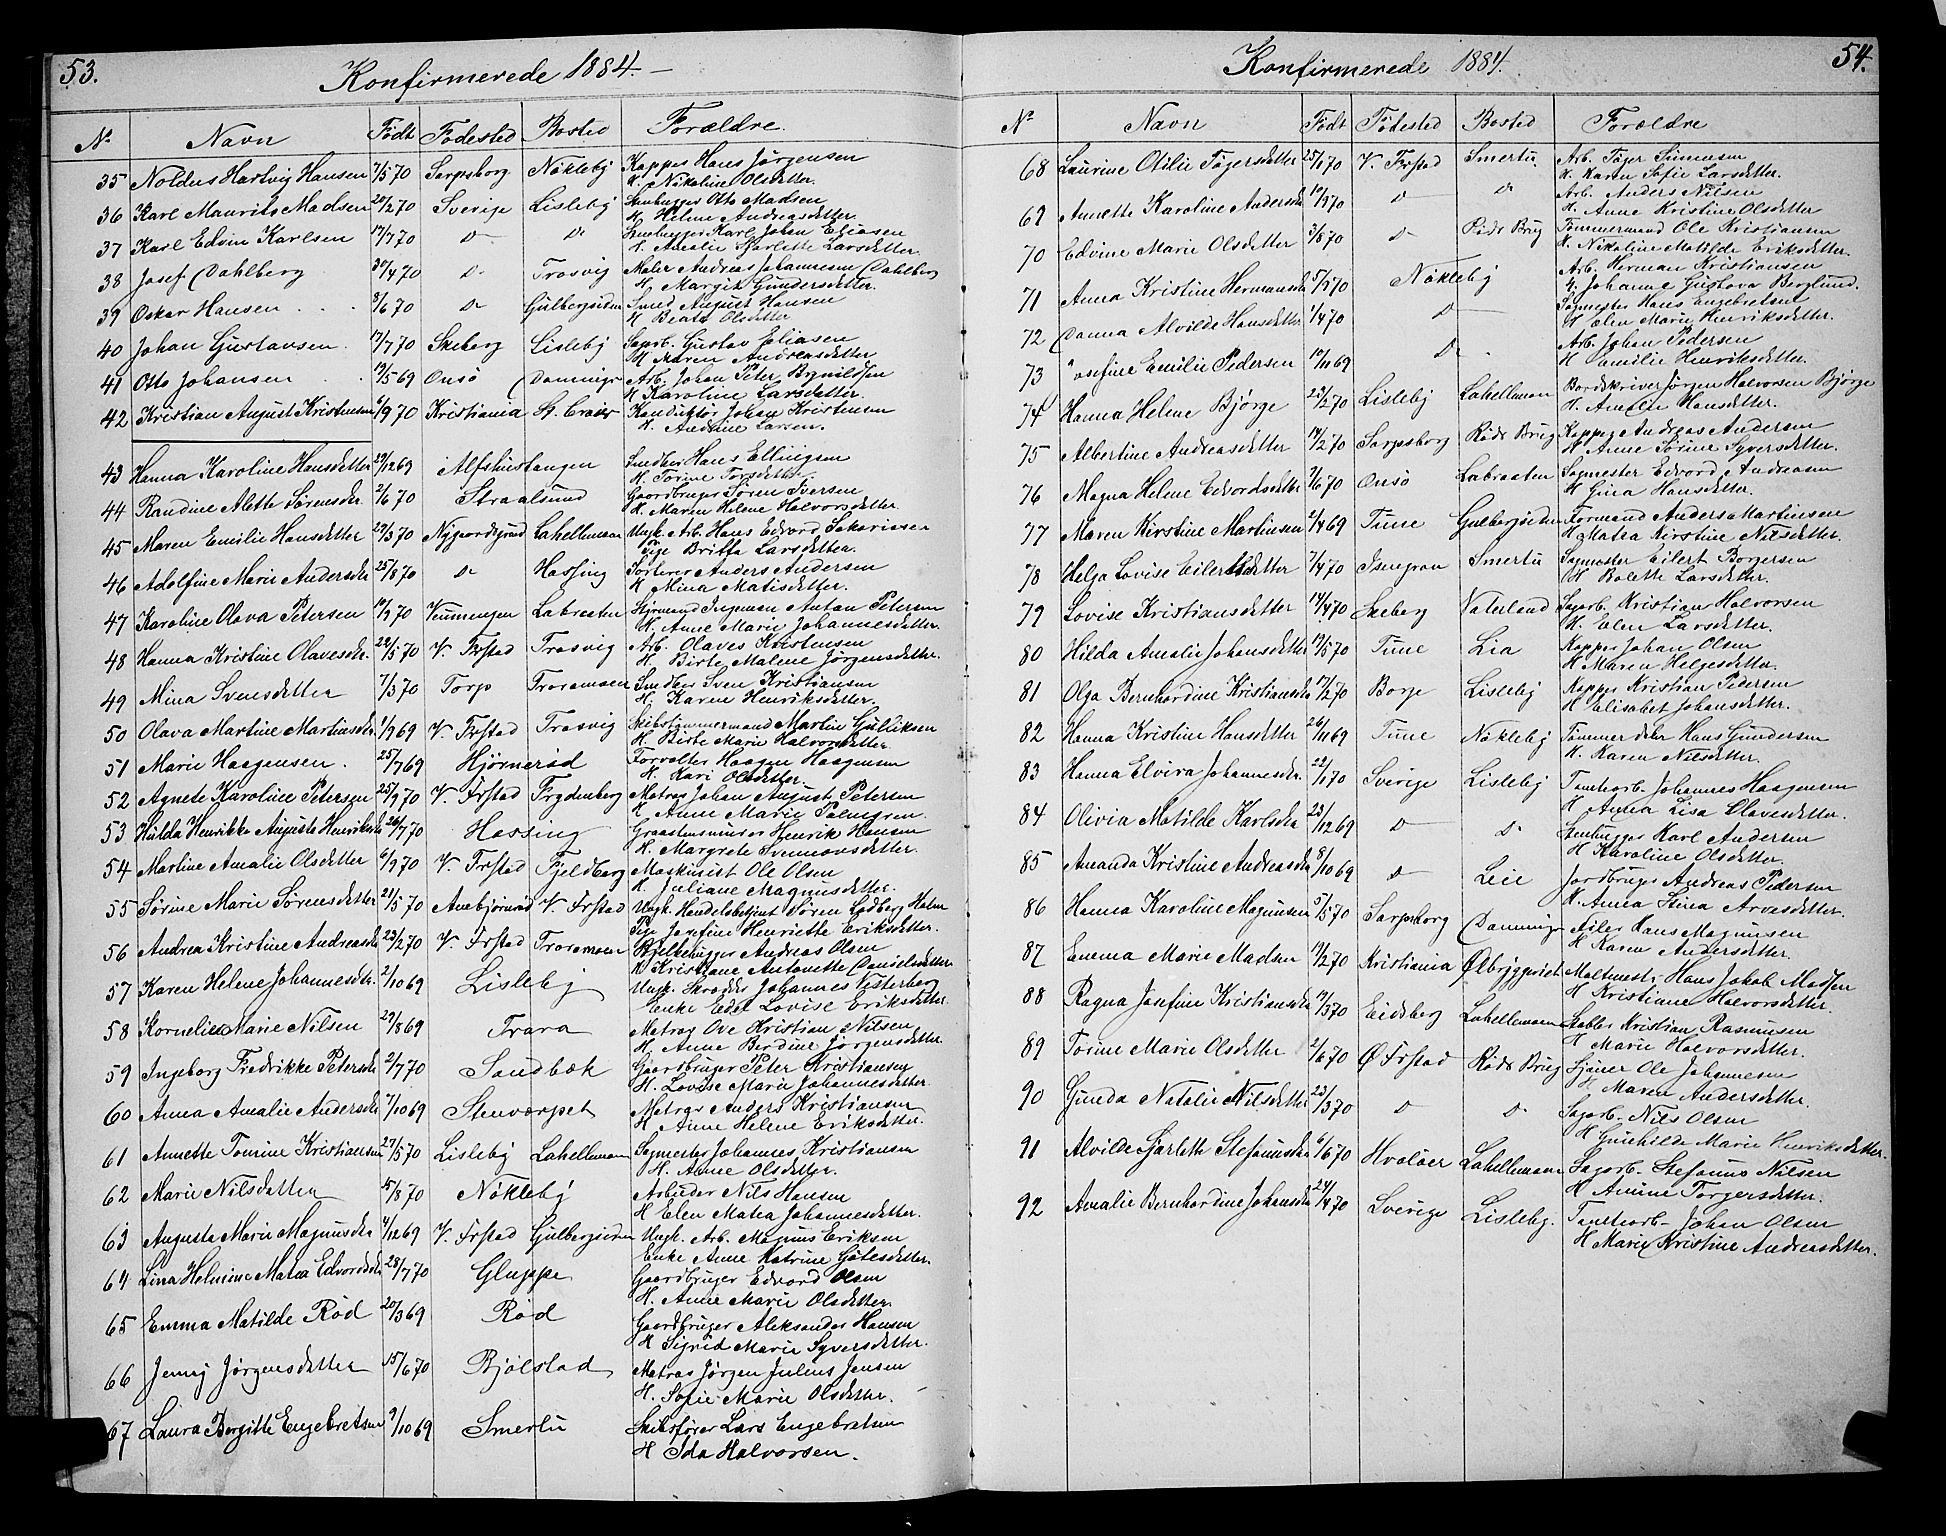 53.
Konfirmerede 1884.
No Navn Födt Födested Bosted Forældre.
35 Noldus Hartvig Hansen 7/5 70 Sarpsborg Nöklebÿ Kapper Hans Jörgensen
H. Nikoline Olsdatter.
36 Karl Maurits Madsen 20/2 70 Sverige Lislebÿ Stenhugger Otto Madsen
H. Helene Andreasdatter
37 Karl Edvin Karlsen 17/7 70 Do Do Stenhugger Karl Johan Eliasen
H. Amalie Sjarlotte Larsdatter.
38 Josef Dahlberg 30/4 70 Do Trosvig Maler Andreas Johannesen Dahlberg
H. Margit Gundersdatter.
39 Oskar Hansen 8/6 70 Do Gulbergsiden Smed August Hansen
H Beate Olsdatter
40 Johan Gustavsen 17/7 70 Skeberg Lislebÿ Sagarb. Gustav Eliasen
H Maren Andreasdatter
41 Otto Johansen 19/5 69 Onsö Damings Arb. Johan Peter Brynildsen
H Karoline Larsdatter.
42 Kristian August Kristensen 6/9 70 Kristiania St. Croix Konduktör Johan Kristensen
H. Andrine Larsen.
43 Hanna Karoline Hansdatter 29/12 69 Alfshustangen Smedber Hans Ellingsen
H. Torine Torsdatter.
44 Randine Alette Sörensdr. 2/6 70 Straalsund Gaardbruger Sören Iversen
H. Maren Helene Halvorsdatter.
45 Maren Emilie Hansdatter 27/3 70 Nygaardsgrund Lahellemoen Ungk. Arb. Hans Edvard Sakariasen
og Pige Britta Larsdatter.
46 Adolfine Marie Andersdr 25/8 70 Do Hassing Sorterer Anders Andersen
H. Mina Matisdatter.
47 Karoline Olava Petersen 19/9 70 Labraaten Styrmand Ingman Anton Petersen
H. Anne Marie Johannesdatter.
48 Hanna Kristine Olavesdr. 22/5 70 V. Frstad Trosvig Arb. Olaves Kristensen
H. Birte Malene Jörgensdatter.
49 Mina Svensdatter 7/3 70 Torp Traramoen Smedber Sven Kristiansen
H. Karen Henriksdatter.
50 Olava Martine Martinsdr. 1/9 69 V. Frstad Trosvig Skibstömmermand Martin Gulliksen
H. Birte Marie Halvorsdatter
51 Marie Haagensen. 25/7 69 Hjörneröd Forvalter Haagen Haagensen
H. Kari Olsdatter.
52 Agnete Karoline Petersen 25/9 70 V. Frstad Frydenberg Matros Johan August Petersen
H. Anne Marie Palmgren.
53 Hulda Henrikke Augusta Henriksdr 26/7 70 Hassing Graastensmurer Henrik Hansen
H. Margrete Svennovsdatter.
54 Martine Amalie Olsdatter 6/9 70 V. Frstad Fjeldberg Maskinist Ole Olsen
H. Juliane Magnusdatter.
55 Sörine Marie Sörensdatter 21/5 70 Ambjörnröd V. Frstad Ungk. Handelsbetjent Sören Lodberg Holm
Pige Josefine Henriette Eriksdatter.
56 Andrea Kristine Andreasdr 23/2 70 V. Frstad Traramoen Bjelkehugger Andreas Olsen
H Kristiane Antonette Danielsdatter
57 Karen Helene Johannesdr. 2/10 69 Lislebÿ Ungk. Skrædder Johannes Vesterberg
Enke Edel Lovise Eriksdatter.
58 Kornelia Marie Nilsen 27/8 69 Trara Matros Ove Kristian Nilsen
H. Anne Berdine Jörgensdatter.
59 Ingeborg Fredrikke Petersdr 2/7 70 Sandbæk Gaardbruger Peter Kristiansen
H. Lovise Marie Johannesdatter.
60 Anna Amalie Andersdr 7/10 69 Stenvorpet Matros Anders Kristiansen
H. Anne Helene Eriksdatter.
61 Annette Tomine Kristiansen 27/5 70 Lislebÿ Lahellemoen Sagmester Johannes Kristiansen
H. Anne Olsdatter.
62 Marie Nilsdatter 5/8 70 Nöklebÿ Arbeider Nils Hansen
H Elen Matea Johannesdatter.
63 Augusta Marie Magnusdr 4/12 69 V. Frstad Gulbergsiden Ungk. Arb. Magnus Eriksen
Enke Anne Katrine Götesdatter.
64 Lina Helmine Matea Edvardsdr 28/7 70 Gluppe Gaardbruger Edvard Olsen
H. Anne Marie Olsdatter.
65 Emma Matilde Röd 20/3 69 Röd Gaardbruger Aleksander Hansen
H Sigrid Marie Syversdatter.
66 Jenny Jörgensdatter 15/6 70 Bjölstad Matros Jörgen Julius Jensen
H. Sofie Marie Olsdatter.
67 Laura Bergitte Engebretsen 9/10 69 Smertu Skibsförer Lars Engebretsen
H Ida Halvorsen.
54.
Konfirmerede 1884.
No Navn Födt Födested Bosted Forældre
68 Laurine Otilie Tögersdatter 25/1 70 V. Frstad Smertu. Arb. Töger Simensen
H. Karen Sofie Larsdatter.
69 Annette Karoline Andersdr 10/3 70 Do Do Arb. Anders Nilsen
H. Anne Kristine Olsdatter
70 Edvine Marie Olsdatter 3/8 70 Do Röds Brug Tömmermand Ole Kristiansen
H. Nikoline Matilde Eriksdatter.
71 Anna Kristine Hermansdr 5/5 70 Nöklebÿ Arb. Herman Kristiansen
H. Johanne Gustava Berglund.
72 Danna Alvilde Hansdatter 1/4 70 Do Sagmester Hans Engebretsen
H Elen Marie Henriksdatter.
73 Josefine Emilie Pedersen 10/11 69 Do Arb. Johan Pedersen
H Emilie Henriksdatter.
74 Hanna Helene Bjørge 22/2 70 Lislebÿ Lahellemoen Bordskriver Jörgen Halvorsen Bjørge
H. Amalie Hansdatter.
75 Albertine Andreasdatter 14/2 70 Sarpsborg Röds Brug Kapper Andreas Andersen
H Anne Sörine Syversdatter.
76 Magna Helene Edvardsdatter 7/6 70 Onsö Labraaten Sagmester Edvard Andreasen
H Gina Hansdatter.
77 Maren Kirstine Martinsen 2/4 69 Tune Gulbergsiden Formand Anders Martinsen
H. Matea Kirstine Nilsdatter.
78 Helga Lovise Eilertsdatter 7/4 70 Isengran Smertu Sagmester Eilert Borgersen
H Bolette Larsdatter.
79 Lovise Kristiansdatter 14/4 70 Skeberg Vaterland Sagarb. Kristian Halvorsen
H. Elen Larsdatter.
80 Hilda Amalie Johansdatter 19/5 70 Tune Lia Kapper Johan Olsen
H Maren Helgesdatter.
81 Olga Bernhardine Kristiansdr 17/2 70 Borge Lislebÿ Kapper Kristian Pedersen
H Elisabet Johansdatter.
82 Hanna Kristine Hansdatter 26/11 69 Tune Nöklebÿ Tömmer deler Hans Gundersen
H. Karen Nilsdatter.
83 Hanna Elvira Johannesdr. 22/1 70 Sverige Lislebÿ Tomtearb. Johannes Haagensen
H Anna Lisa Olavesdatter.
84 Olivia Matilde Karlsdr 23/12 69 Do Do Stenhugger Karl Andersen
H Karoline Olsdatter.
85 Amanda Kristine Andreasdr 8/10 69 Do Leie Jordbruger Andreas Pedersen
H. Anna Stina Arvesdatter.
86 Hanna Karoline Magnusen 5/5 70 Sarpsborg Damings Feiler Hans Magnusen
H Karen Andersdatter.
87 Emma Marie Madsen 11/2 70 Kristiania Ølbryggeriet Maltmester Hans Jakob Madsen
H Kristiane Halvorsdatter.
88 Ragna Josefine Kristiansdr 19/3 70 Eidsberg Lahellemoen Stabler Kristian Rasmusen
H Marie Halvorsdatter.
89 Torine Marie Olsdatter 2/6 70 Ø Frstad Röds Brug Sjauer Ole Johannesen
H Maren Andersdatter.
90 Gunda Natalie Nilsdatter 23/3 70 Do Do Sagarb. Nils Olsen
H Gunhilde Marie Henriksdatter.
91 Alvilde Sjarlotte Stefanusdr 6/6 70 Hvaløer Lahellemoen Sagarb. Stefanus Nilsen
H Amine Torgersdatter.
92 Amalie Bernhardine Johansdr 24/4 70 Sverige Lislebÿ. Tomtearb. Johan Olsen
H Marie Kristine Andreasdatter.